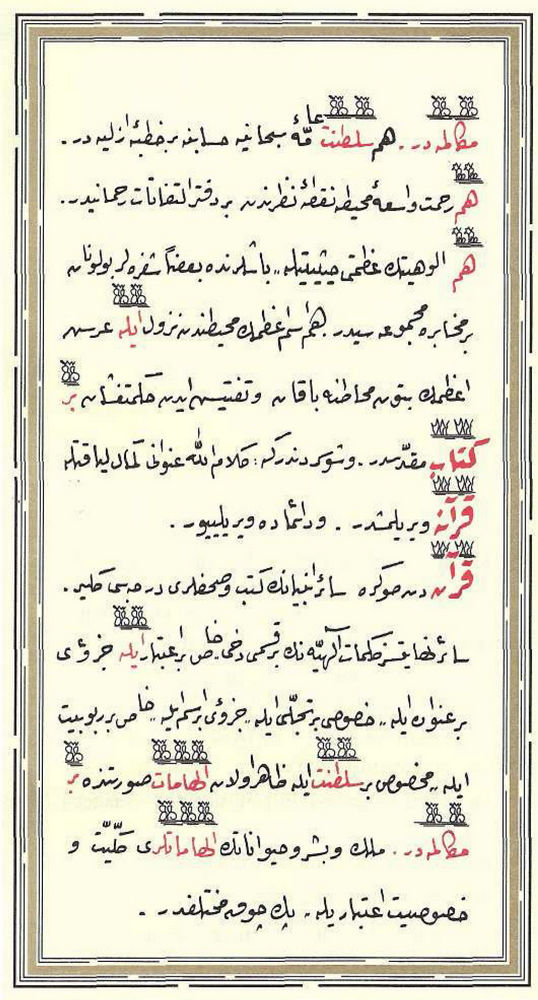 مكالمه‌در. هم سلطنت عامّهٔ سبحانیه حسابنه بر خطبهٔ ازلیه‌در.
هم رحمت واسعهٔ محیطه نقطهٔ نظرندن بر دفتر التفاتات رحمانیدر.
هم الوهیتك عظمتی حیثیتیله، باشلرنده بعضًا شفره‌لر بولونان
بر مخابره مجموعه‌سیدر. هم اسم اعظمك محیطندن نزول ایله عرش
اعظمك بتون محاطنه باقان و تفتیش ایدن حكمتفشان بر
كتاب مقدّسدر. و شو سردندركه: كلام اللّٰه عنوانی كمال لیاقتله
قرآنه ویریلمشدر. و دائما ده ویریلییور.
قرآن دن صوكره سائر انبیانك كتب و صحفلری درجه‌سی كلیر.
سائر نهایتسز كلمات الٓهیّه نك بر قسمی دخی خاص بر اعتبار ایله جزؤی
بر عنوان ایله، خصوصی بر تجلّی ایله، جزؤی بر اسم ایله، خاص بر ربوبیت
ایله، مخصوص بر سلطنت ایله ظاهر اولان الهامات صورتنده بر
مكالمه‌در. ملك و بشر و حیواناتك الهاماتلری كلّیّت و
خصوصیت اعتباریله، پك چوق مختلفدر.